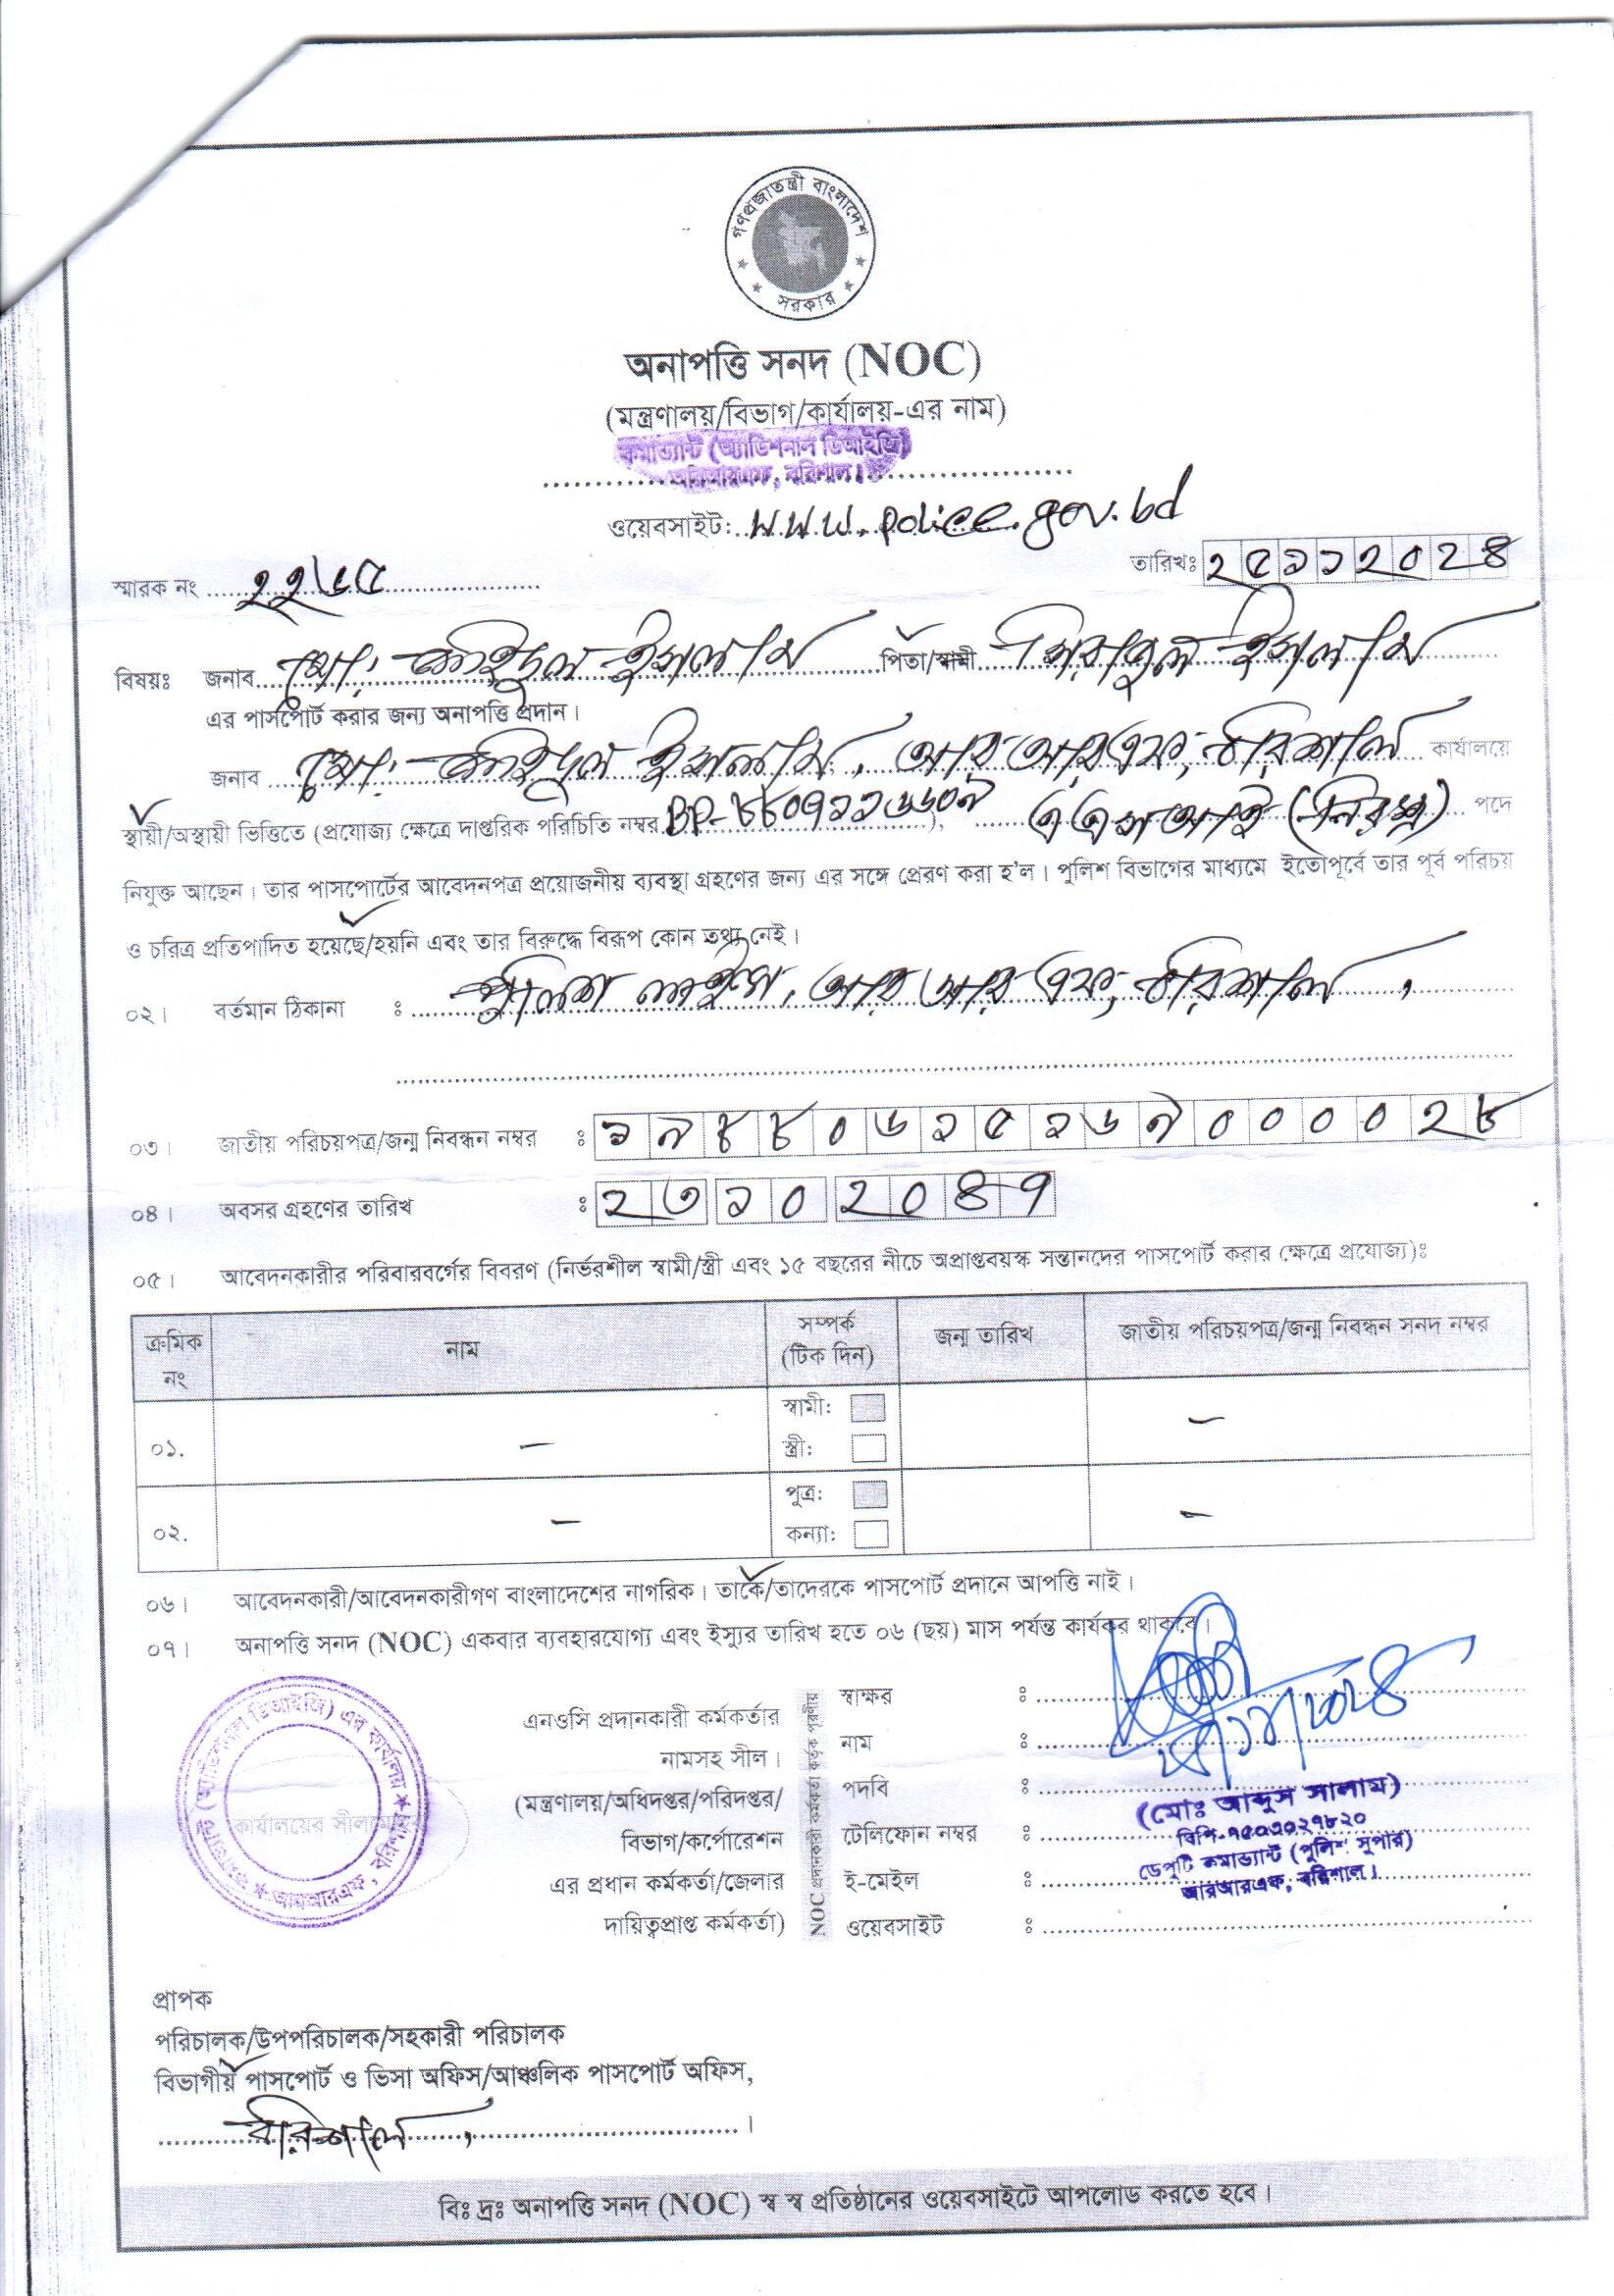 গণপ্রজাতন্ত্রী বাংলাদেশ
সরকার
অনাপত্তি সনদ (NOC)
(মন্ত্রণালয়/বিভাগ/কার্যালয়-এর নাম)
কমান্ড্যান্ট (অ্যাডিশনাল ডিআইজি)
আরআরএফ, বরিশাল।
ওয়েবসাইট: www.police.gov.bd
তারিখঃ ২৫১১২০২৪
স্মারক নং ২২৬৫
বিষয়ঃ জনাব মো: ইসলাম পিতা/স্বামী সিরাজুল ইসলাম
এর পাসপোর্ট করার জন্য অনাপত্তি প্রদান।
জনাব মো: ইসলাম, আর আর এফ, বরিশাল কার্যালয়ে
স্থায়ী/অস্থায়ী ভিত্তিতে (প্রযোজ্য ক্ষেত্রে দাপ্তরিক পরিচিতি নম্বর BP-৮৮০৭১১৬৬০৯), এ এস আই (নিরস্ত্র) পদে
নিযুক্ত আছেন। তার পাসপোর্টের আবেদনপত্র প্রয়োজনীয় ব্যবস্থা গ্রহণের জন্য এর সঙ্গে প্রেরণ করা হ'ল। পুলিশ বিভাগের মাধ্যমে ইতোপূর্বে তার পূর্ব পরিচয়
ও চরিত্র প্রতিপাদিত হয়েছে/হয়নি এবং তার বিরুদ্ধে বিরূপ কোন তথ্য নেই।
০২। বর্তমান ঠিকানা ঃ পুলিশ লাইন্স, আর আর এফ, বরিশাল,
০৩। জাতীয় পরিচয়পত্র/জন্ম নিবন্ধন নম্বর ঃ ১৯৮৮০৬১৫১৬৯০০০০২৮
০৪। অবসর গ্রহণের তারিখ ঃ ২৩১০২০৪৭
০৫। আবেদনকারীর পরিবারবর্গের বিবরণ (নির্ভরশীল স্বামী/স্ত্রী এবং ১৫ বছরের নীচে অপ্রাপ্তবয়স্ক সন্তানদের পাসপোর্ট করার ক্ষেত্রে প্রযোজ্য)ঃ
ক্রমিক নং নাম সম্পর্ক (টিক দিন) জন্ম তারিখ জাতীয় পরিচয়পত্র/জন্ম নিবন্ধন সনদ নম্বর
০১. – স্বামী: –
স্ত্রী:
০২. – পুত্র: –
কন্যা:
০৬। আবেদনকারী/আবেদনকারীগণ বাংলাদেশের নাগরিক। তাকে/তাদেরকে পাসপোর্ট প্রদানে আপত্তি নাই।
০৭। অনাপত্তি সনদ (NOC) একবার ব্যবহারযোগ্য এবং ইস্যুর তারিখ হতে ০৬ (ছয়) মাস পর্যন্ত কার্যকর থাকবে।
কমান্ড্যান্ট (অ্যাডিশনাল ডিআইজি) এর কার্যালয়
আরআরএফ, বরিশাল
কার্যালয়ের সীলমোহর
এনওসি প্রদানকারী কর্মকর্তার
নামসহ সীল।
(মন্ত্রণালয়/অধিদপ্তর/পরিদপ্তর/
বিভাগ/কর্পোরেশন
এর প্রধান কর্মকর্তা/জেলার
দায়িত্বপ্রাপ্ত কর্মকর্তা)
NOC প্রদানকারী কর্মকর্তা কর্তৃক পূরণীয়
স্বাক্ষর ঃ
নাম ঃ
পদবি ঃ
টেলিফোন নম্বর ঃ
ই-মেইল ঃ
ওয়েবসাইট ঃ
(মোঃ আব্দুস সালাম)
বিপি-৭৫০৩০২৭৮২০
ডেপুটি কমান্ড্যান্ট (পুলিশ সুপার)
আরআরএফ, বরিশাল।
প্রাপক
পরিচালক/উপপরিচালক/সহকারী পরিচালক
বিভাগীয় পাসপোর্ট ও ভিসা অফিস/আঞ্চলিক পাসপোর্ট অফিস,
বরিশাল,।
বিঃ দ্রঃ অনাপত্তি সনদ (NOC) স্ব স্ব প্রতিষ্ঠানের ওয়েবসাইটে আপলোড করতে হবে।